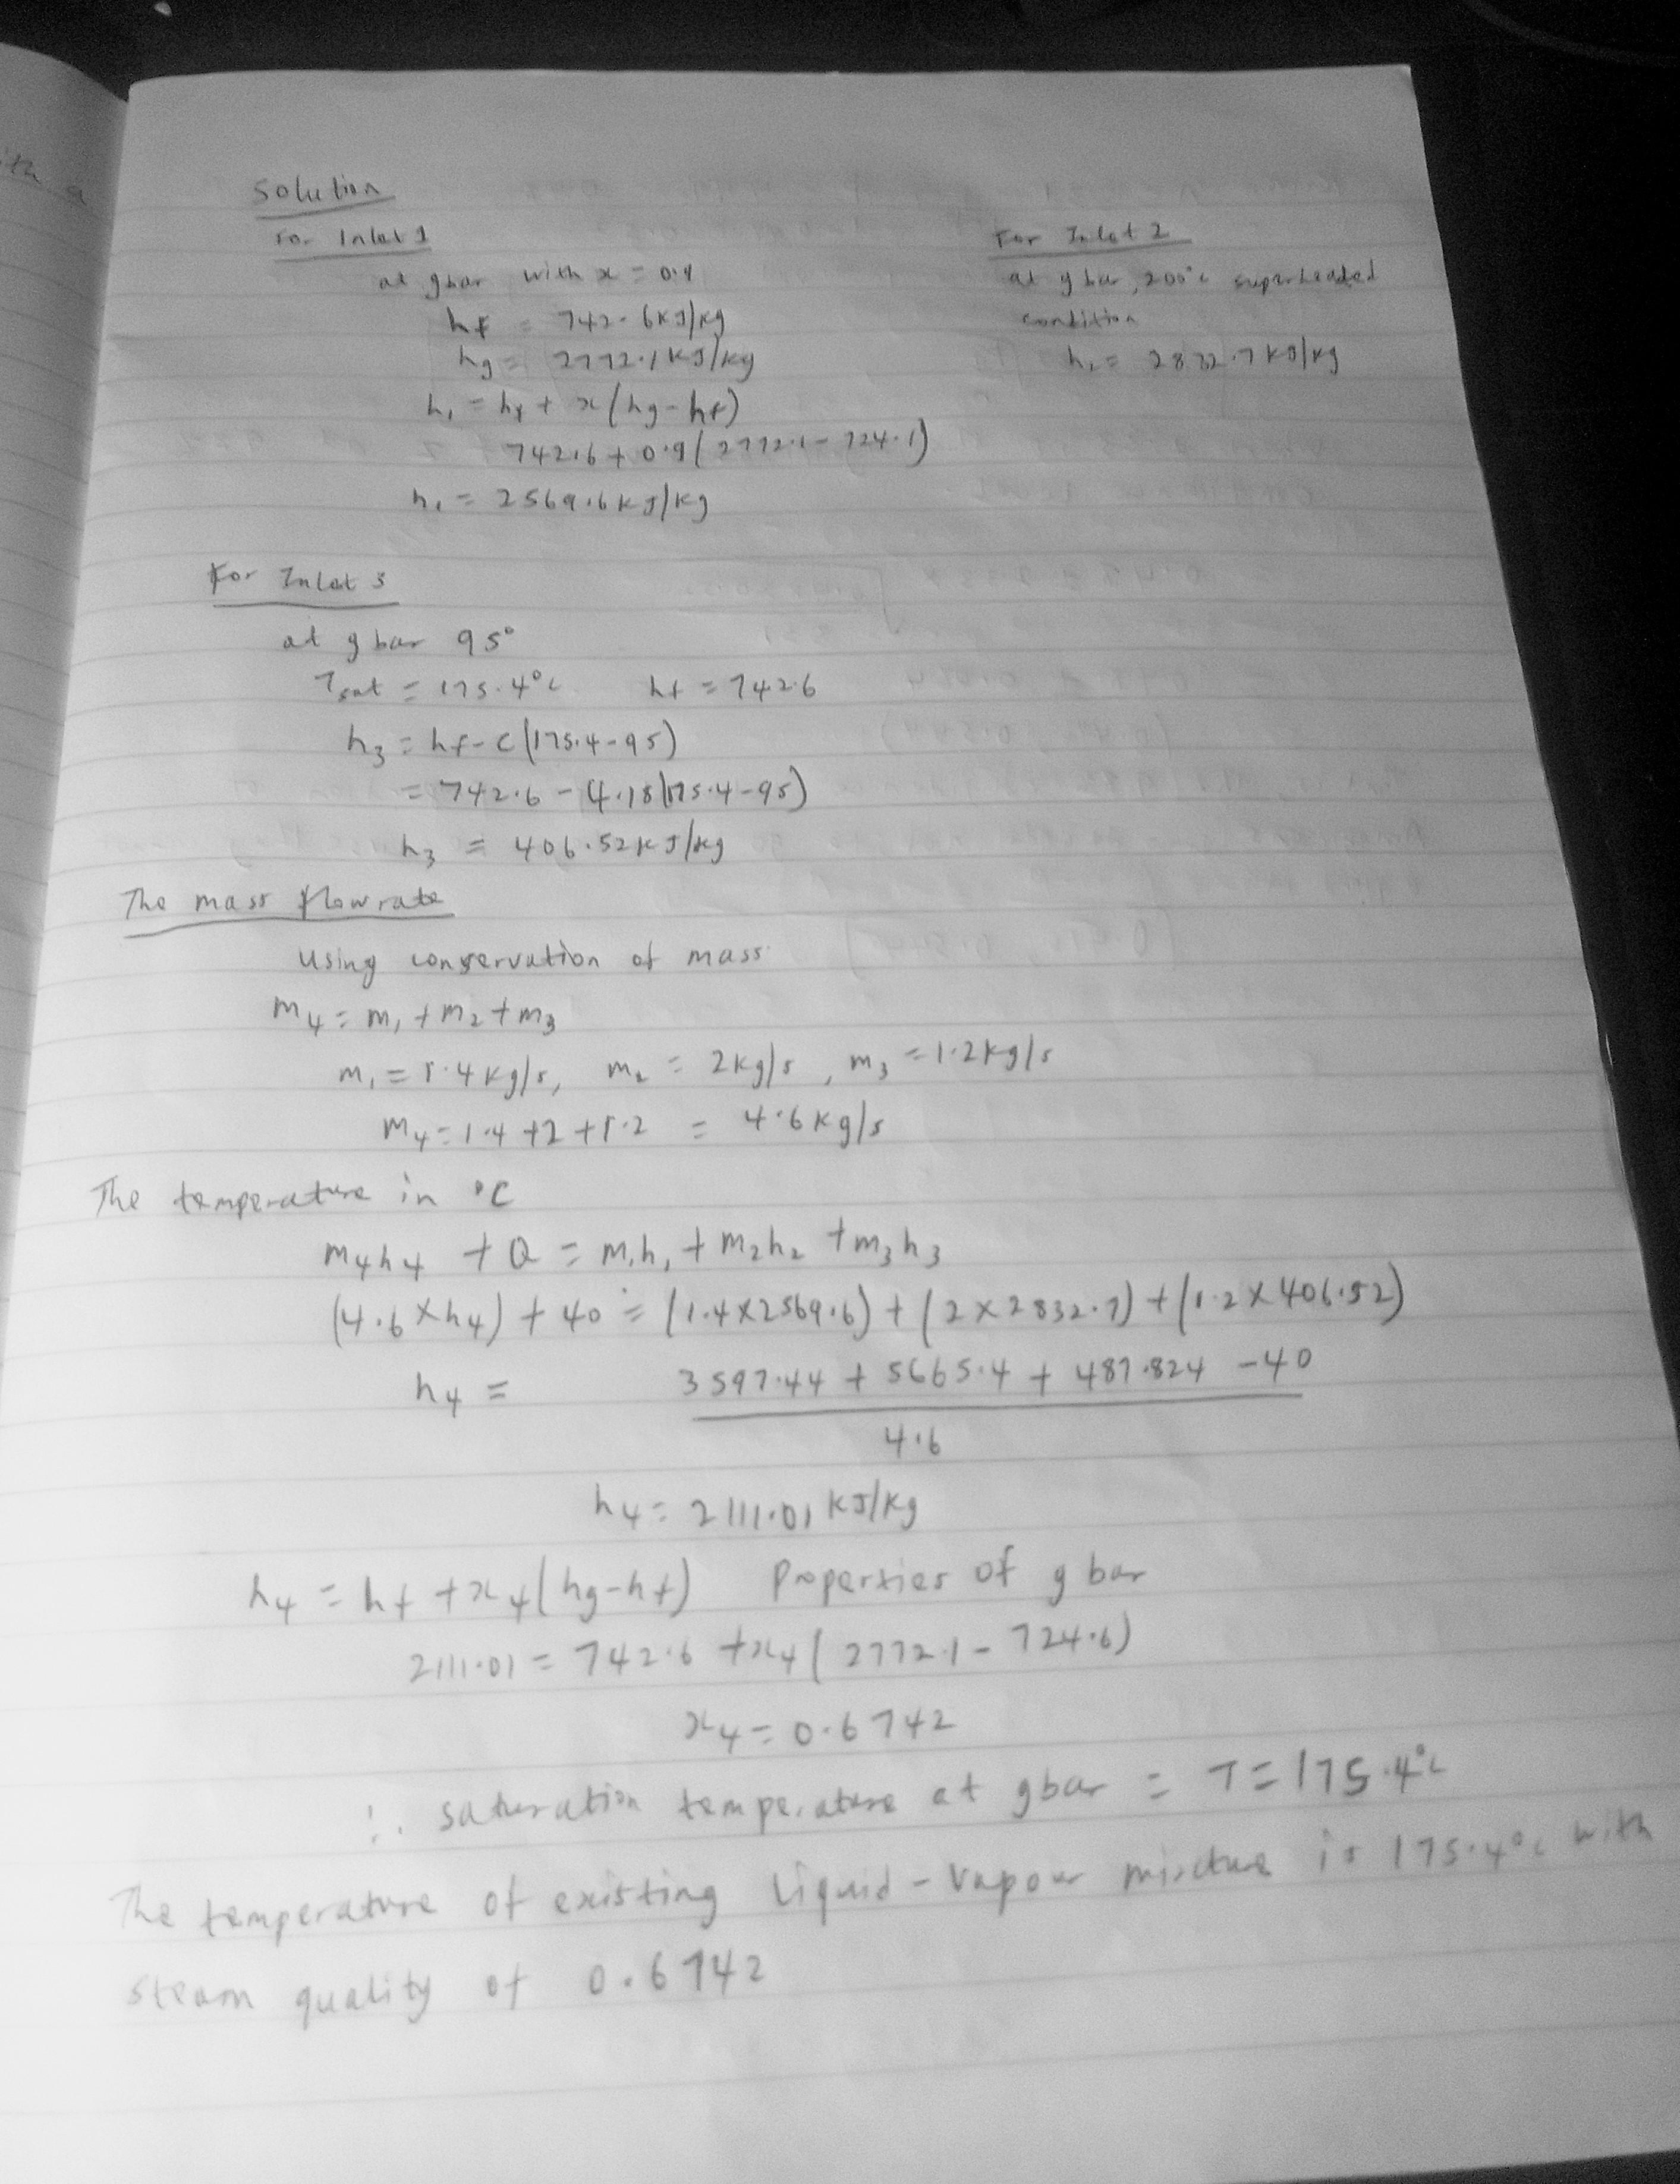 Solution
For Inlet 1
at 9bar with x = 0.9
hf = 742.6KJ/kg
hg = 2772.1KJ/kg
h1 = hf + x(hg-hf)
742.6 + 0.9(2772.1 - 724.1)
h1 = 2569.6KJ/kg
For Inlet 2
at 9 bar, 200°c superheated
condition
h2 = 2832.7KJ/kg
For Inlet 3
at 9 bar 95°
Tsat = 175.4°c hf = 742.6
h3 = hf-c(175.4-95)
= 742.6 - 4.18(175.4-95)
h3 = 406.52KJ/kg
The mass flowrate
Using conservation of mass
m4 = m1 + m2 + m3
m1 = 1.4kg/s, m2 = 2kg/s, m3 = 1.2kg/s
m4 = 1.4 + 2 + 1.2 = 4.6kg/s
The temperature in °C
m4h4 + Q = m1h1 + m2h2 + m3h3
(4.6 x h4) + 40 = (1.4x2569.6) + (2 x 2832.7) + (1.2 x 406.52)
h4 = 3597.44 + 5665.4 + 487.824 - 40
4.6
h4 = 2111.01 KJ/kg
h4 = hf + x4(hg-hf) Properties of 9 bar
2111.01 = 742.6 + x4(2772.1 - 724.6)
x4 = 0.6742
∴ saturation temperature at 9bar = T = 175.4°c
The temperature of existing Liquid-Vapour mixture is 175.4°c with
steam quality of 0.6742